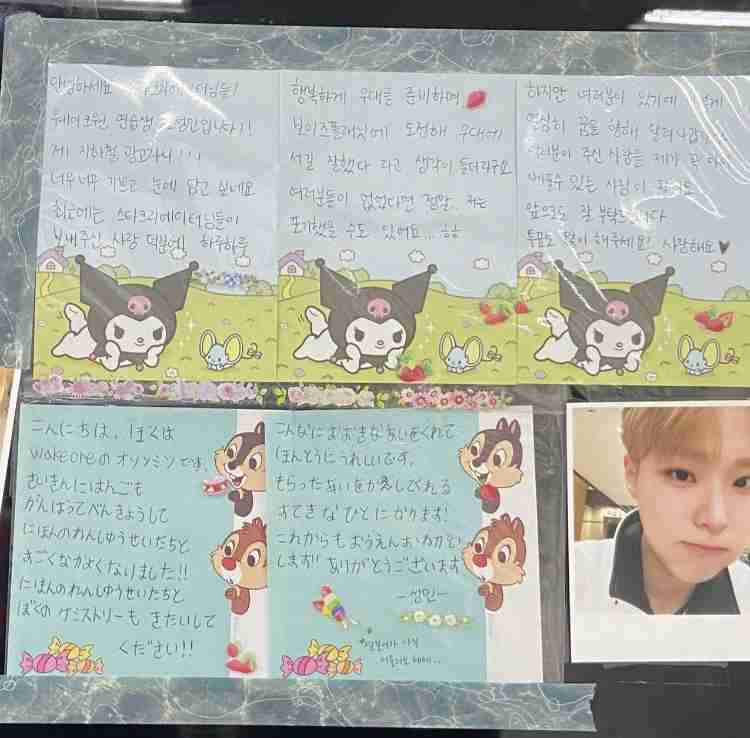 안녕하세요 스타크리에이터님들!
웨이크원 연습생 오선민입니다!!
제 지하철 광고라니!!!
너무너무 기쁘고 눈에 담고 싶네요
최근에는 스타크리에이터님들이
보내주신 사랑 덕분에 하루하루
행복하게 무대를 준비하며
보이즈플래닛에 도전해 무대에
서길 잘했다 라고 생각이 들더라구요
여러분들이 없었다면 전말.. 저는
포기했을 수도 있어요... ㅎㅎ
하지만 여러분이 있기에
열심히 꿈을 향해 달려나갑
여러분이 주신 사랑을 제가 꼭
베풀수 있는 사람이
앞으로도 잘 부탁드립니다
투표도 많이 해주세요! 사랑해요♥
こんにちは、ぼくは
wakeoneのオソンミンです。
さいきんにほんごも
がんばってべんきょうして
にほんのれんしゅうせいたちと
すごくなかよくなりました!!
にほんのれんしゅうせいたちと
ぼくのケミストリーもきたいして
ください!!
こんなにおおきなあいをくれて
ほんとうにうれしいです。
もらったあいをかえしびれる
すてきなひとになります!
これからもおうえんおねがい
します!! ありがとうございます
-선민-